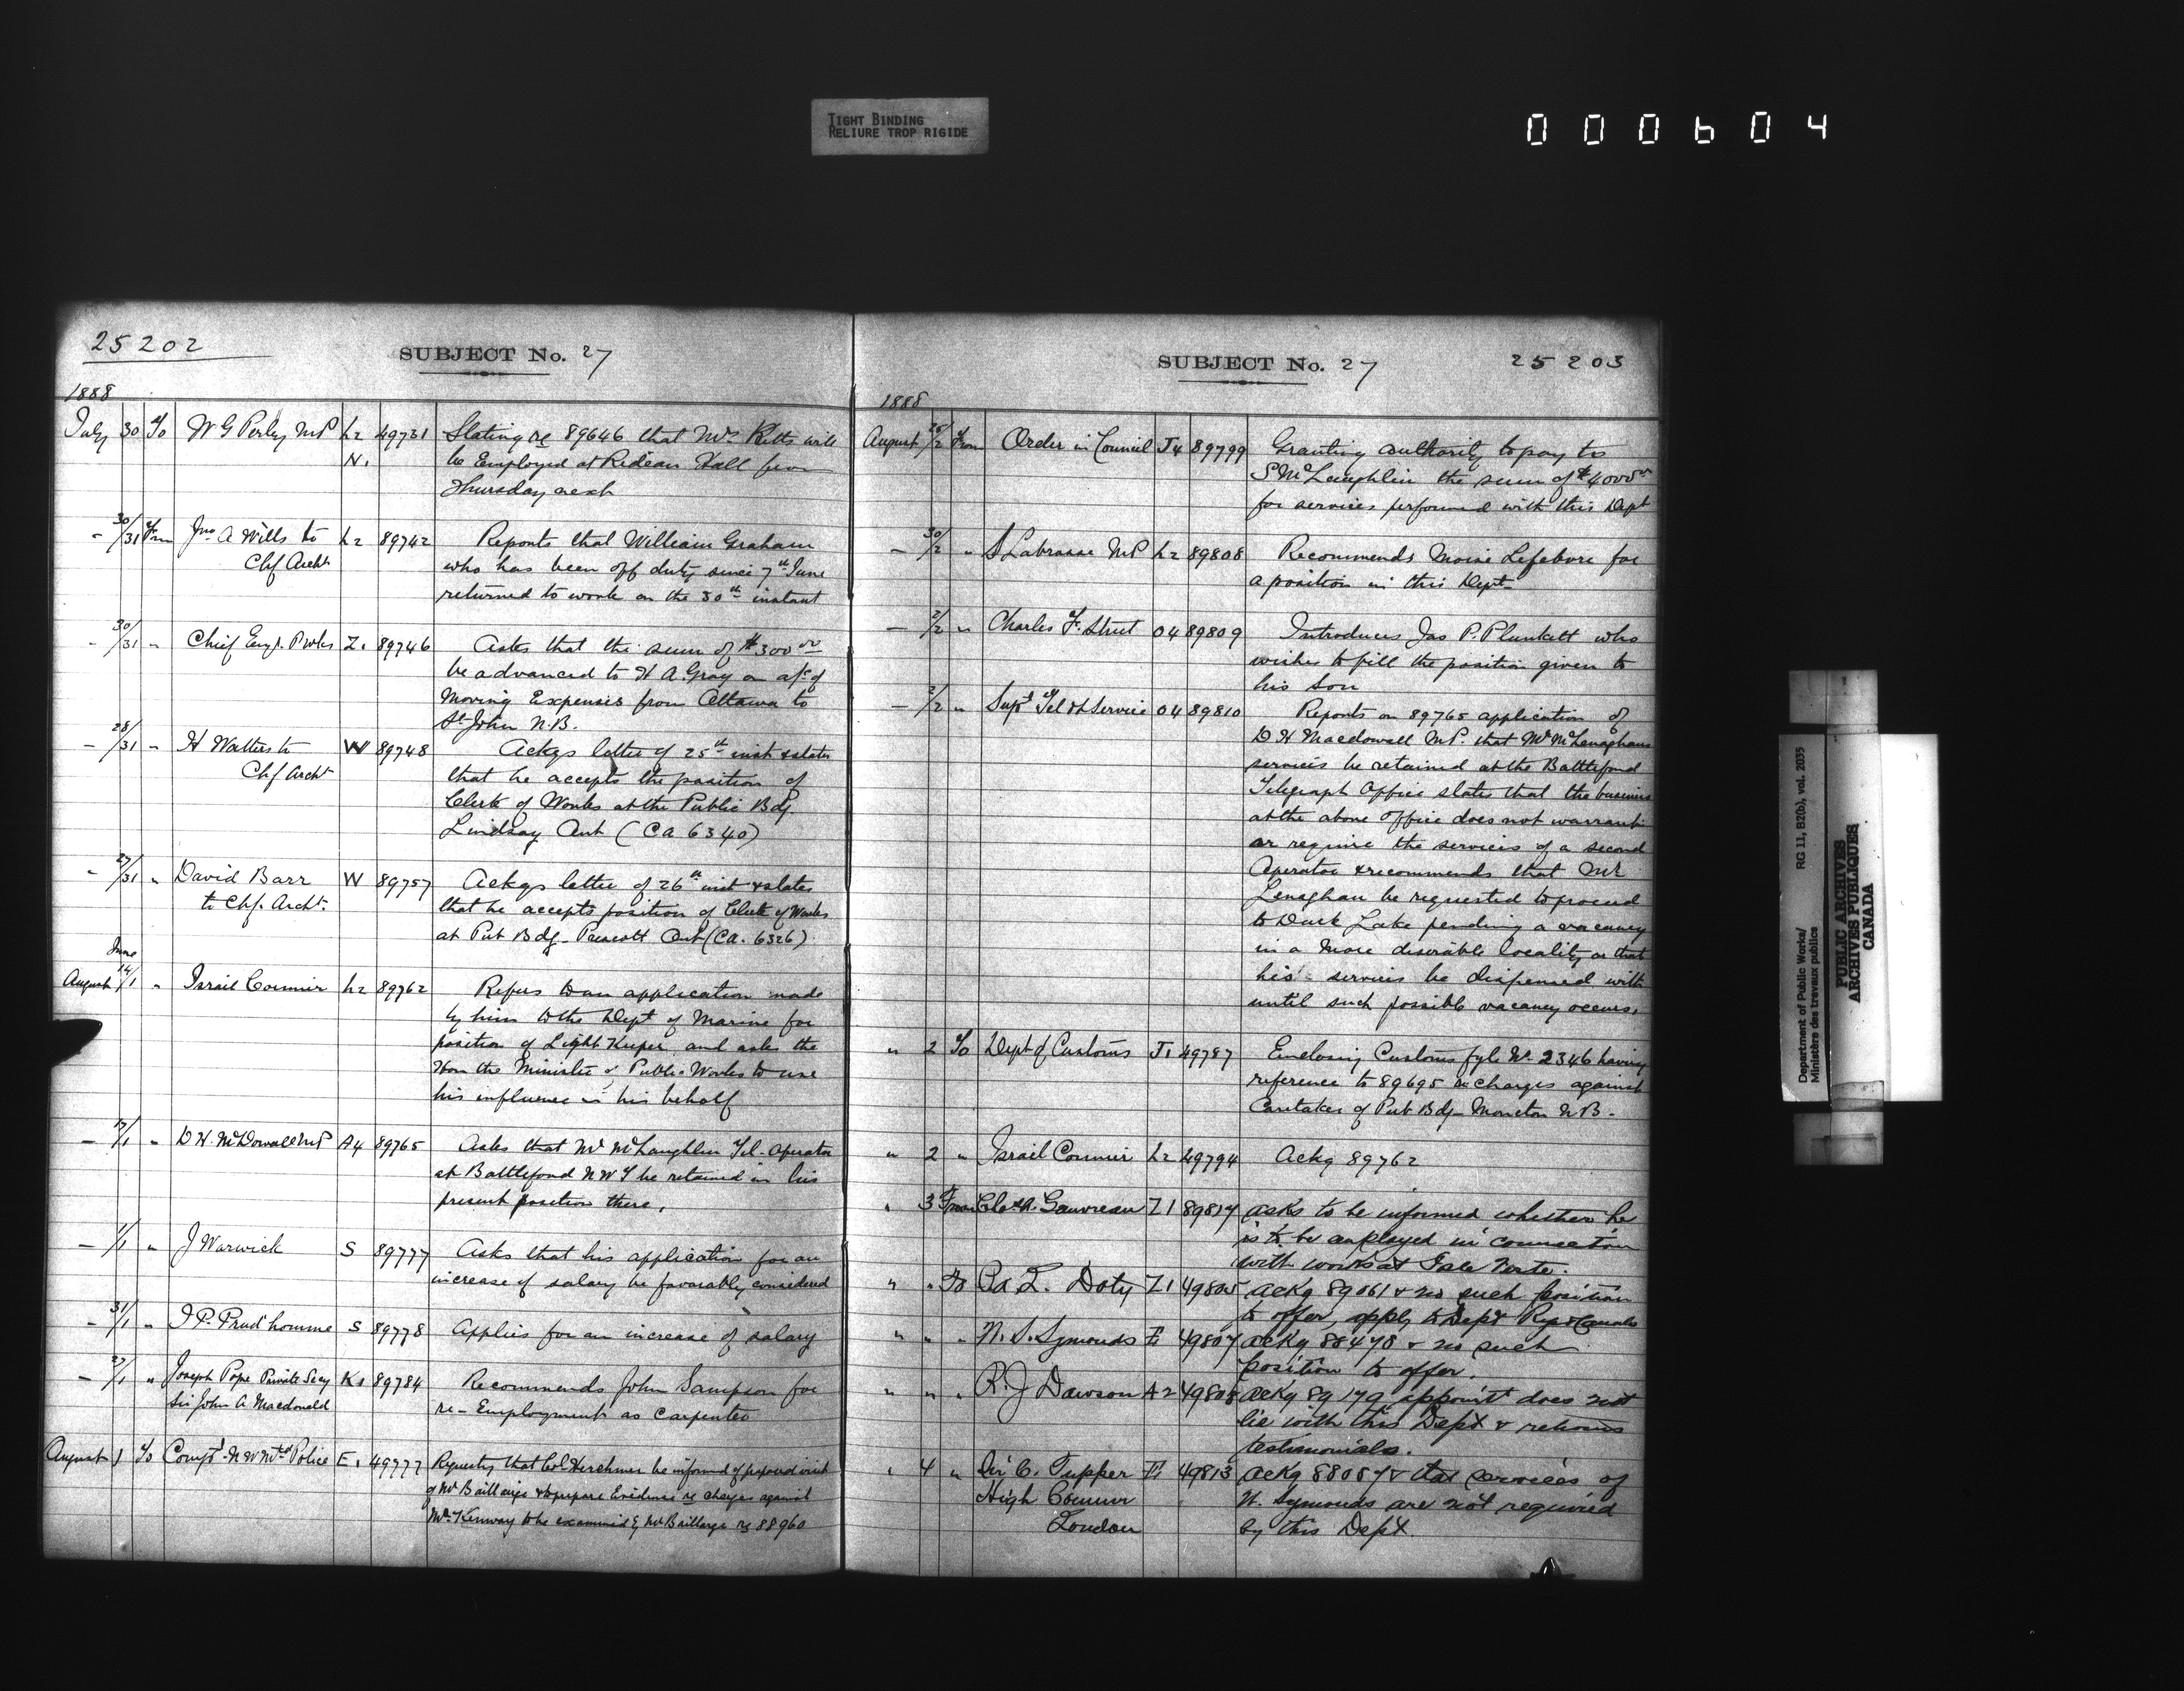 TIGHT BINDING
RELIURE TROP RIGIDE
000604
25202
SUBJECT No. 27
1888
July 30 To W G Perley MP L2 49731 Stating re 89646 that Mr Pitts will
N. be Employed at Rideau Hall from
Thursday next
- 30/31 From Jno A Wills to L2 89742 Reports that William Graham
Chf Archt who has been off duty since 7th June
returned to work on the 30th instant
- 30/31 " Chief Engr. P Wks Z1 89746 Asks that the sum of $300 00
be advanced to H A. Gray on a/c of
Moving Expenses from Ottawa to
St John N.B.
- 28/31 " H Watters to W 89748 Ackgs letter of 25th inst & states
Chf Archt that he accepts the position of
Clerk of Works at the Public Bdg.
Lindsay Ont (CA 6340)
- 27/31 " David Barr W 89757 Ackgs letter of 26th inst & states
to Chf. Archt. that he accepts position of Clerk of Works
at Pub Bdg - Prescott Ont (CA. 6326)
June
August 14/1 " Israil Cormier L2 89762 Refers to an application made
by him to the Dept of Marine for
position of Light Keeper and asks the
Hon the Minister of Public Works to use
his influence in his behalf
- 17/1 " D H. McDowall MP A4 89765 Asks that Mr McLaughlin Tel-Operator
at Battleford N W T be retained in his
present position there.
- 1/1 " J Warwick S 89777 Asks that his application for an
increase of salary be favorably considered
- 31/1 " J P. Prud'homme S 89778 Applies for an increase of salary
- 27/1 " Joseph Pope Private Secy K1 89784 Recommends John Sampson for
Sir John A Macdonald re-Employment as Carpenter
August 1 To Compt N W Mtd Police E1 49777 Requests that Col Herchmer be informed of proposed visit
of Mr Baillairge & to prepare Evidence re charges against
Mr. Kenway to be examined by Mr Baillarge re 88960
SUBJECT No. 27
25203
1888
August 25/2 From Order in Council J4 89799 Granting authority to pay to
S McLaughlin the sum of $4000
for services performed with this Dept
- 30/2 " S Labrosse MP L2 89808 Recommends Moise Lefebvre for
a position in this Dept-
- 2/2 " Charles F. Street O4 89809 Introduces Jas P. Plunkett who
wishes to fill the position given to
his son
- 2/2 " Supt Tel & S Service O4 89810 Reports on 89765 application of
D H Macdowall M P. that Mr McLenaghans
services be retained at the Battleford
Telegraph Office states that the business
at the above office does not warrant
or require the services of a second
Operator & recommends that Mr
Lenaghan be requested to proceed
to Duck Lake pending a vacancy
in a more desirable locality or that
his services be dispensed with
until such possible vacancy occurs.
" 2 To Dept of Customs J1 49787 Enclosing Customs fyle No. 2346 having
reference to 89695 re charges against
Caretaker of Pub Bdg - Moncton N B -
" 2 " Israil Cormier L2 49794 Ackg 89762
" 3 From Chs. A. Gauvreau Z1 89817 asks to be informed whether he
is to be employed in connection
with works at Isle Verte.
" " To L. Doty Z1 49805 ackg 89061 & no such position
to offer, apply to Dept Rys & Canals
" " " N. S. Symonds E1 49807 ackg 88478 & no such
position to offer.
" " " R. J Dawson A2 49808 ackg 89179 appoint does not
lie with this Dept & returns
testimonials.
" 4 " Sir C. Tupper E1 49813 ackg 88087 & that services of
High Commr N. Symonds are not required
London by this Dept.
Department of Public Works/ RG 11, B2(b), vol. 2035
Ministère des travaux publics
PUBLIC ARCHIVES
ARCHIVES PUBLIQUES
CANADA